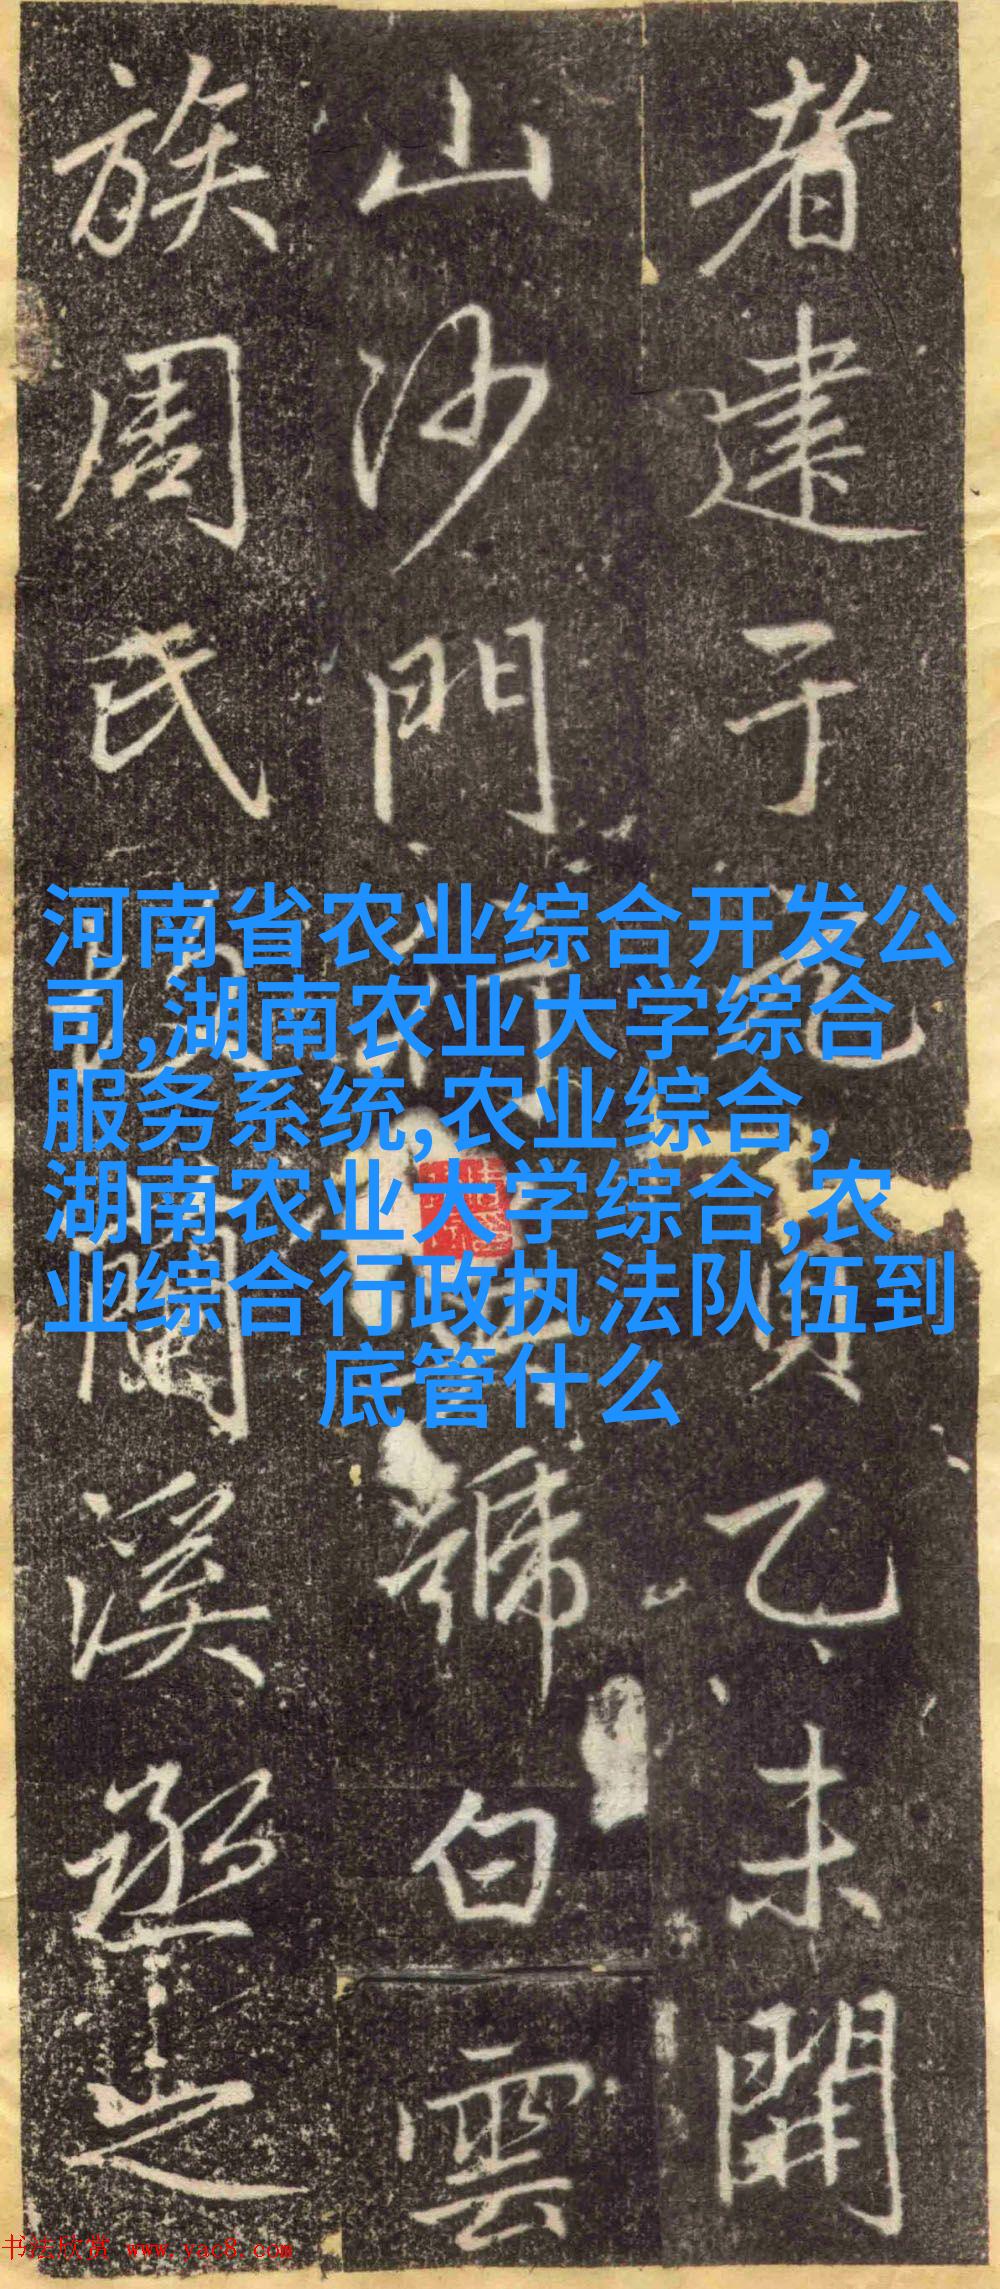 者建于元貞乙未開
山沙門行號白雲
族周氏蘭溪丞之
河南省农业综合开发公
司,湖南农业大学综合
服务系统,农业综合,
湖南农业大学综合,农
业综合行政执法队伍到
底管什么
书法欣赏 www.yac8.com